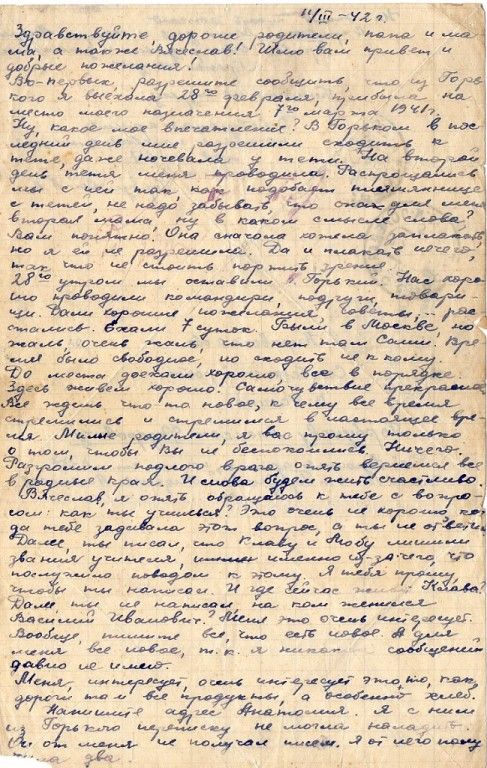 11/III-42 г.
Здравствуйте, дорогие родители, папа и ма-
ма, а также Вячеслав! Шлю вам привет и
добрые пожелания!
Во-первых, разрешите сообщить, что из Горь-
кого я выехала 28го февраля, прибыла на
место моего назначения 7го марта 1941 г.
Ну, какое мое впечатление? В Горьком в пос-
ледний день мне разрешили сходить к
тете, даже ночевала у тети. На второй
день тетя меня проводила. Распрощались
мы с ней так как подобает племяннице
с тетей, не надо забывать, что она для меня
вторая мама, ну в каком смысле слова?
Вам понятно! Она сначала хотела заплакать,
но я ей не разрешила. Да и плакать нечего,
так что не стоить портить зрение.
28го утром мы оставили Горький. Нас хоро-
шо проводили командиры, подруги, товари-
щи. Дали хорошие пожелания, советы, рас-
стались. Ехали 7 суток. Были в Москве, но
жаль, очень жаль, что нет там Сани. Вре-
мя было свободное, но сходить не к кому.
До места доехали хорошо, все в порядке.
Здесь живем хорошо. Самочувствие прекрасное
Все ждешь что то новое, к чему все время
стремились и стремимся в настоящее вре-
мя. Милые родители, я вас прошу только
о том, чтобы Вы не беспокоились. Ничего.
Разгромим подлого врага, опять вернемся все
в родные края. И снова будем жить счастливо.
Вячеслав, я опять обращаюсь к тебе с вопро-
сом: как ты учишься? Это очень не хорошо, ког-
да тебе задавала этот вопрос, а ты не ответил
Далее, ты писал, что Клаву и Любу лишили
звания учителя, именно из за чего, что
послужило поводом к этому. Я тебя прошу,
чтобы ты написал. И где сейчас живет Клава?
Далее, ты не написал, на ком женился
Василий Иванович? Меня это очень интересует.
Вообще, пишите все, что есть новое. А для
меня все новое, т.к. я никаких сообщений
давно не имею.
Меня интересует, очень интересует это то, как
дороги там все продукты, а особенно хлеб.
Напишите адрес Анатолия. Я с ним
из Горького переписку не могла наладить.
Он от меня не получал писем. Я от него полу
чила два.